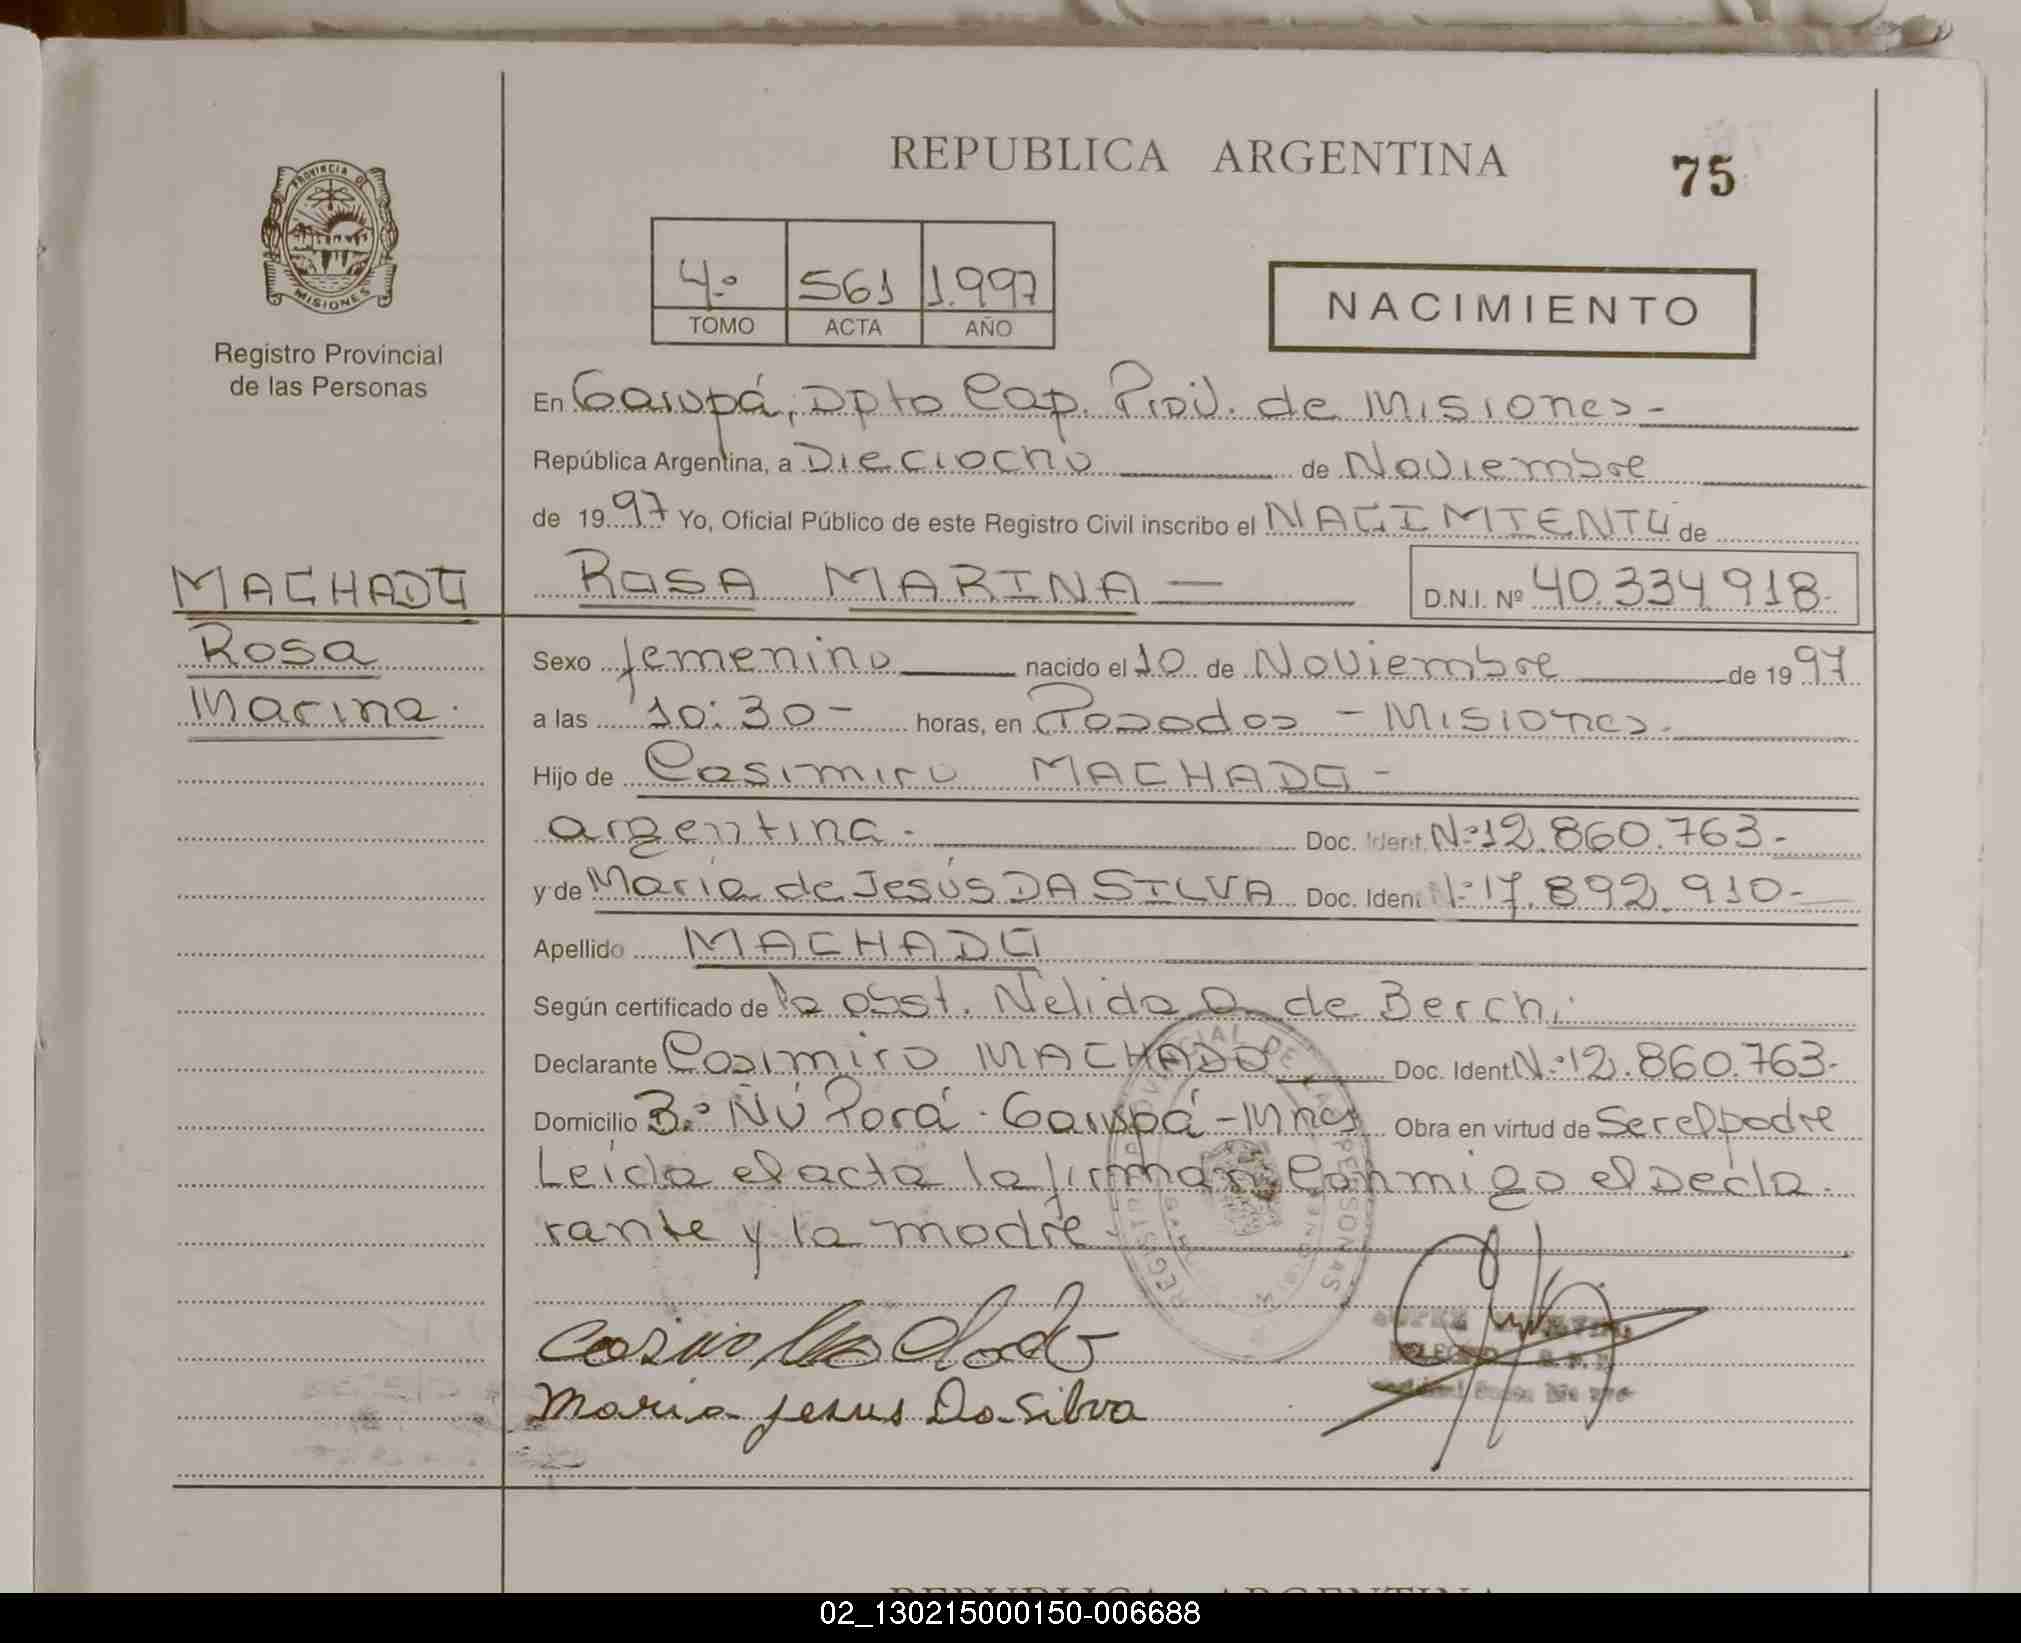 REPUBLICA ARGENTINA
75
PROVINCIA DE
MISIONES
Registro Provincial
de las Personas
4º 561 1.997
TOMO ACTA AÑO
NACIMIENTO
En Garupá, Dpto Cap. Prov. de Misiones-
República Argentina, a Dieciocho de Noviembre
de 1997 Yo, Oficial Público de este Registro Civil inscribo el NACIMIENTO de
MACHADO
Rosa
Marina.
ROSA MARINA — D.N.I. Nº 40.334.918-
Sexo femenino nacido el 10 de Noviembre de 1997
a las 10:30- horas, en Posadas - Misiones.
Hijo de Casimiro MACHADO-
argentina. Doc. Ident. Nº12.860.763-
y de María de Jesús DA SILVA Doc. Ident Nº17.892.910-
Apellido MACHADO
Según certificado de la obst. Nelida O. de Berchi
Declarante Casimiro MACHADO Doc. Ident Nº12.860.763-
Domicilio Bº Ñú Porá. Garupá-Mnes Obra en virtud de Ser el padre
Leída el acta la firman conmigo el decla-
rante y la madre.
REGISTRO PROVINCIAL DE LAS PERSONAS
Machado
Maria Jesus Da Silva
REPUBLICA ARGENTINA
02_130215000150-006688